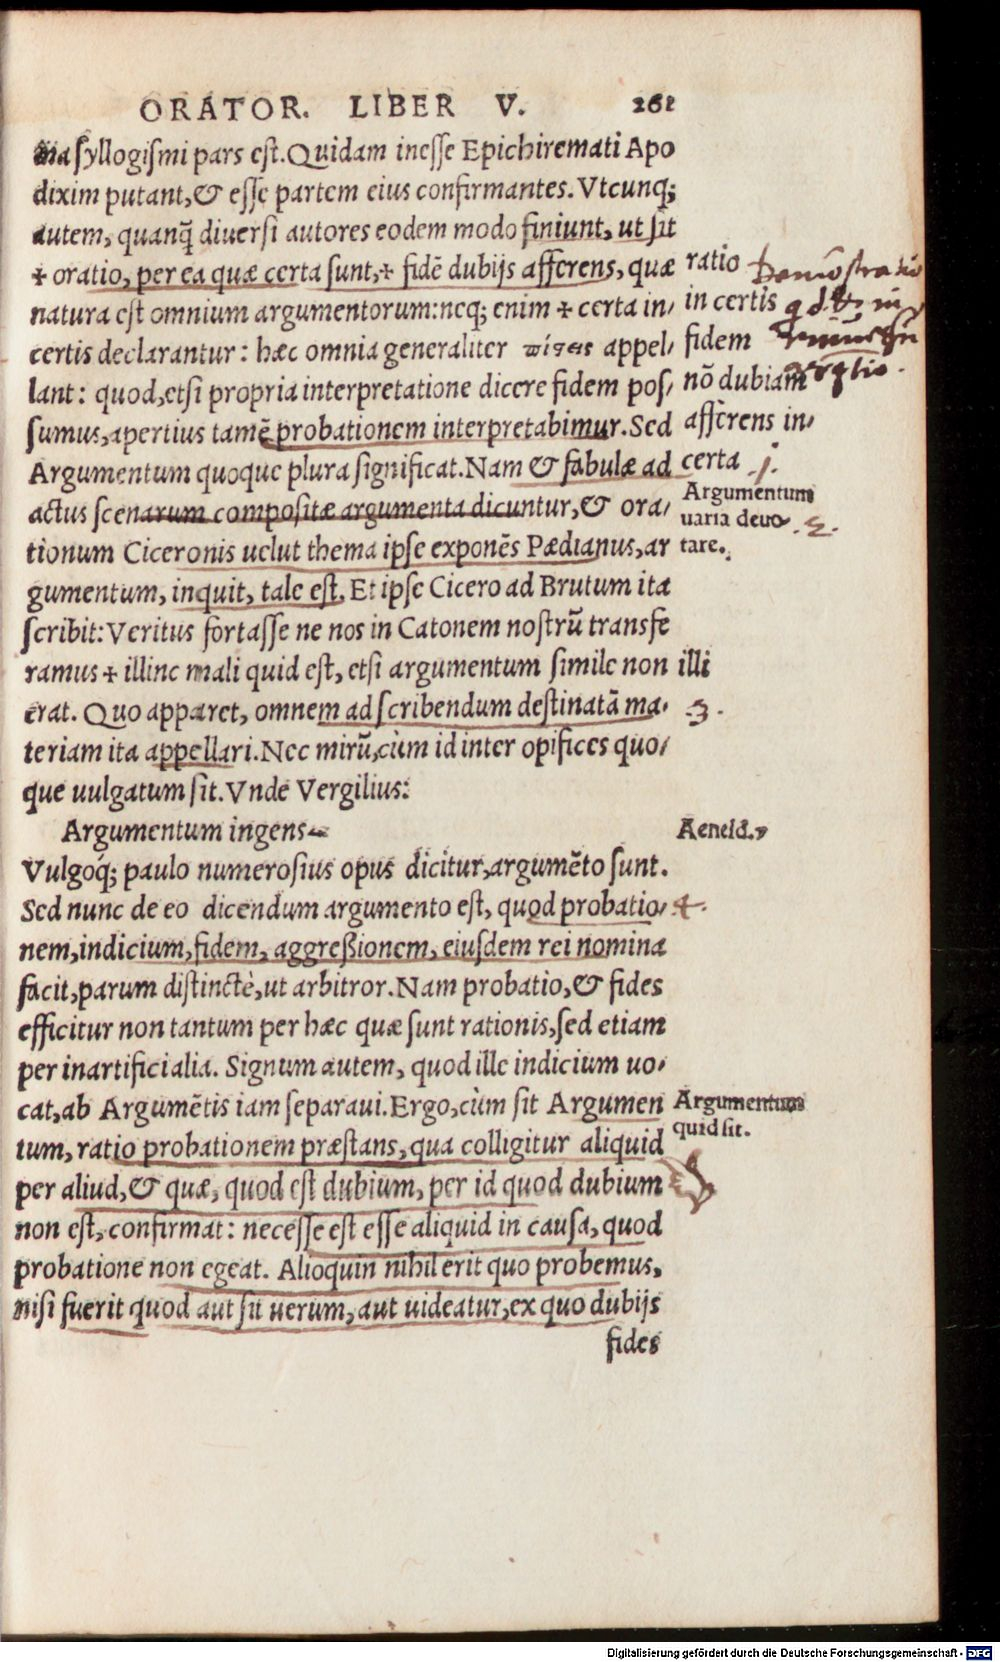 ORATOR. LIBER V. 261
nia syllogiſmi pars eſt. Quidam ineſſe Epichiremati Apo
dixim putant, & eſſe partem eius confirmantes. Vtcunq;
autem, quanq̃ diuerſi autores eodem modo finiunt, ut ſit
✢ oratio, per ea quæ certa ſunt, ✢ fidẽ dubijs afferens, quæ
natura eſt omnium argumentorum: neq; enim ✢ certa in/
certis declarantur: hæc omnia generaliter πίςεις appel/
lant: quod, etſi propria interpretatione dicere fidem poſ/
ſumus, apertius tamẽ probationem interpretabimur. Sed
Argumentum quoque plura ſignificat. Nam & fabulæ ad
actus ſcenarum compoſitæ argumenta dicuntur, & ora/
tionum Ciceronis uelut thema ipſe exponẽs Pædianus, ar
gumentum, inquit, tale eſt. Et ipſe Cicero ad Brutum ita
ſcribit: Veritus fortaſſe ne nos in Catonem noſtrũ transfe
ramus ✢ illinc mali quid eſt, etſi argumentum ſimile non
erat. Quo apparet, omnem ad ſcribendum deſtinatã ma/
teriam ita appellari. Nec mirũ, cùm id inter opifices quo/
que uulgatum ſit. Vnde Vergilius:
Argumentum ingens
Vulgóq; paulo numeroſius opus dicitur, argumẽto ſunt.
Sed nunc de eo dicendum argumento eſt, quod probatio/
nem, indicium, fidem, aggreßionem, eiuſdem rei nomina
facit, parum diſtinctè, ut arbitror. Nam probatio, & fides
efficitur non tantum per hæc quæ ſunt rationis, ſed etiam
per inartificialia. Signum autem, quod ille indicium uo/
cat, ab Argumẽtis iam ſeparaui. Ergo, cùm ſit Argumen
tum, ratio probationem præſtans, qua colligitur aliquid
per aliud, & quæ, quod eſt dubium, per id quod dubium
non eſt, confirmat: neceſſe eſt eſſe aliquid in cauſa, quod
probatione non egeat. Alioquin nihil erit quo probemus,
niſi fuerit quod aut ſit uerum, aut uideatur, ex quo dubijs
fides
ratio
in certis
fidem
nõ dubiam
afferens in/
certa
.1.
Argumentum
uaria deno
.2.
tare.
illi
.3.
Aeneid.7
.4.
Argumentum
quid ſit.
Demõstratio
Digitalisierung gefördert durch die Deutsche Forschungsgemeinschaft - DFG